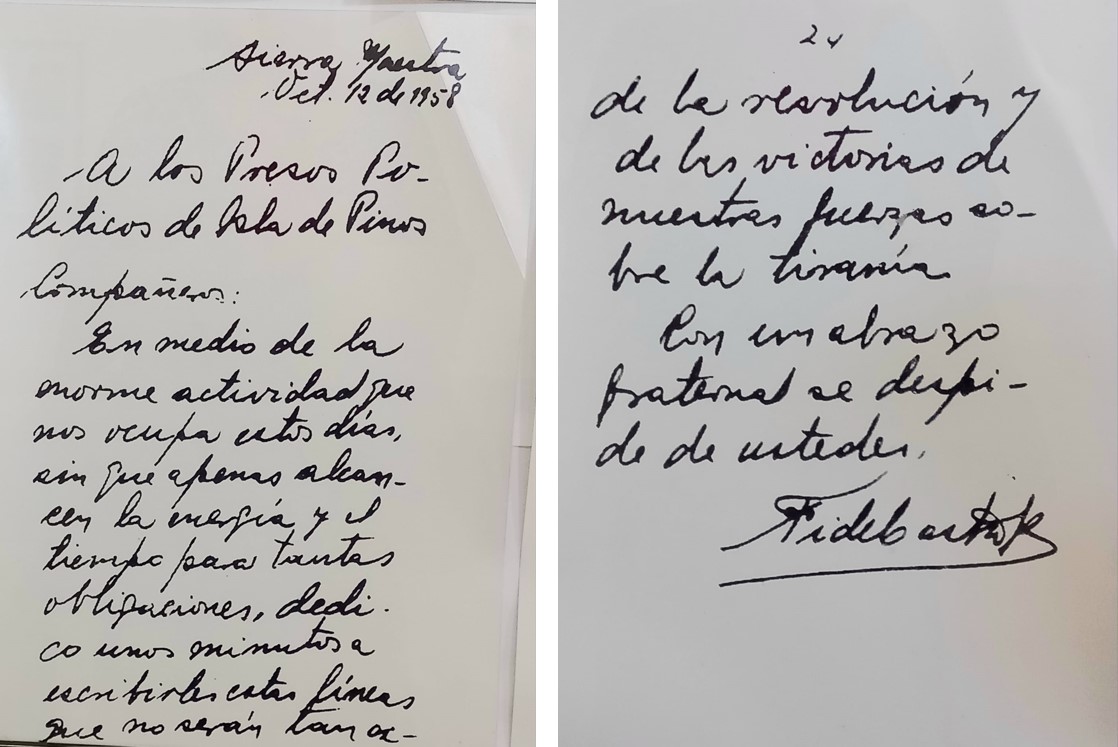 Sierra Maestra
Oct. 12 de 1958
A los Presos Po-
líticos de Isla de Pinos
Compañeros:
En medio de la
enorme actividad que
nos ocupa estos días,
sin que apenas alcan-
cen la energía y el
tiempo para tantas
obligaciones, dedi-
co unos minutos a
escribirles estas líneas
que no serán tan ex-
de la revolución y
de las victorias de
nuestras fuerzas so-
bre la tiranía
Con un abrazo
fraternal se despi-
de de ustedes,
Fidel Castro R